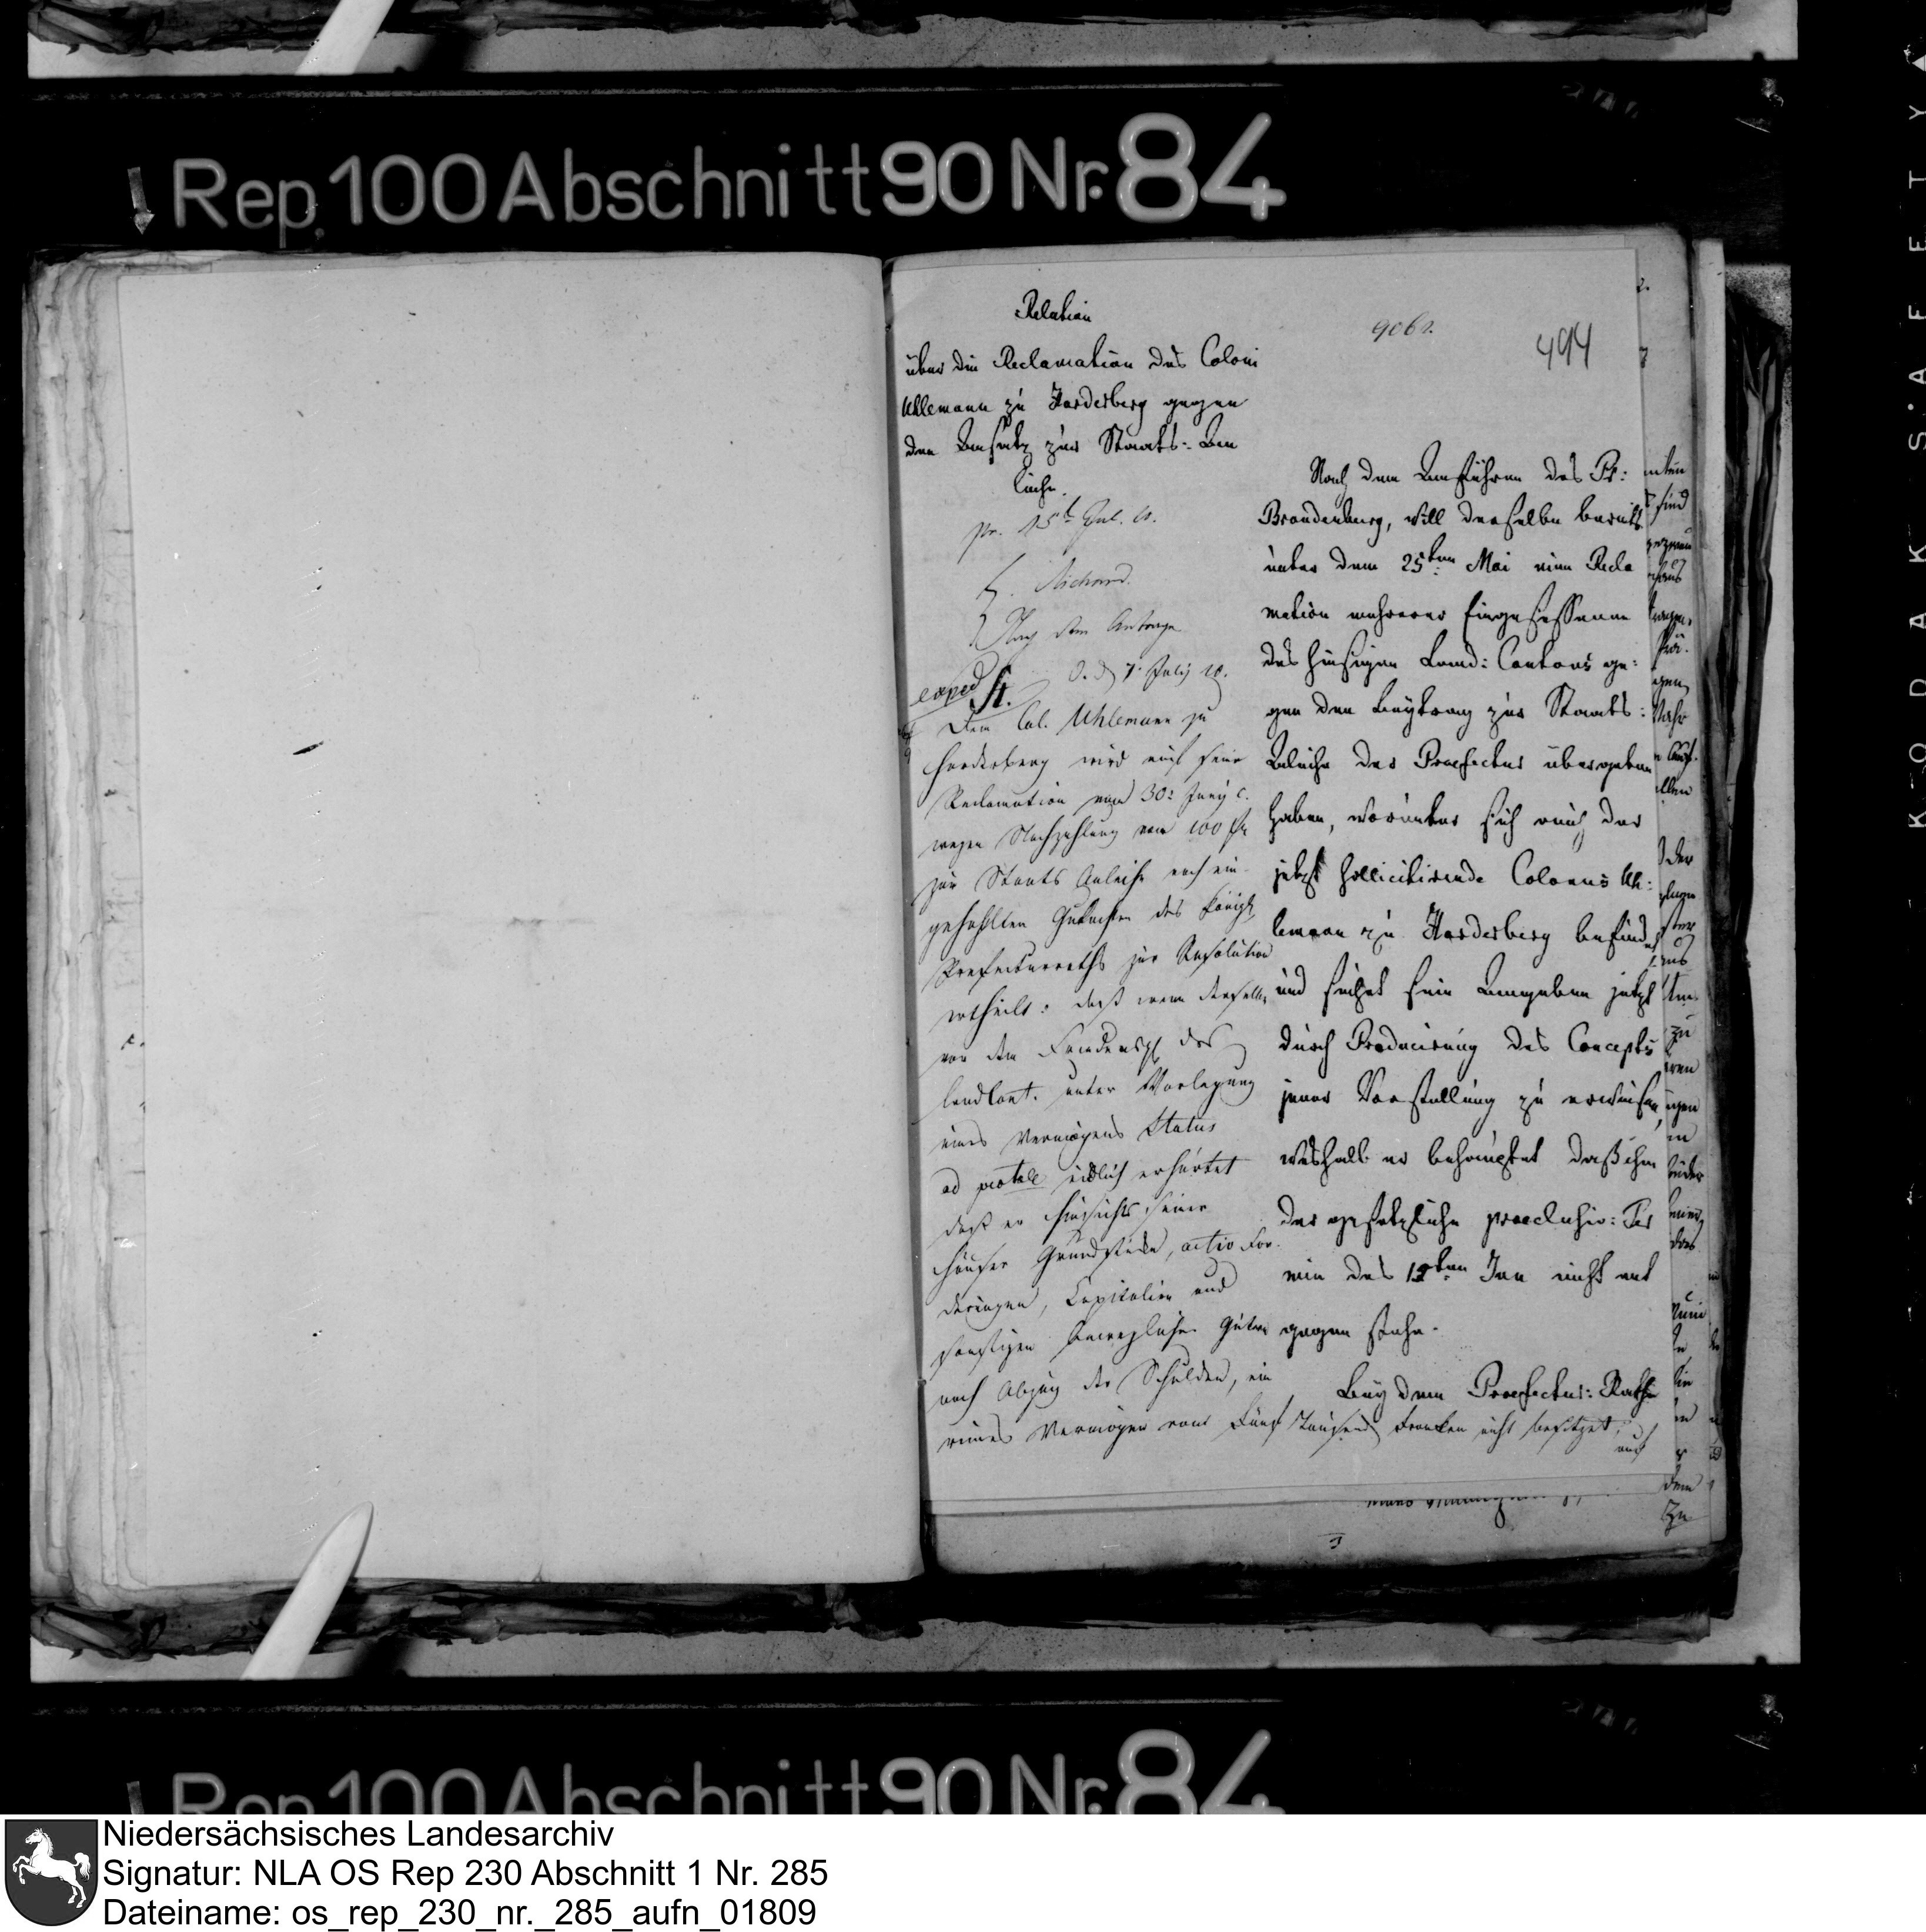 Rep. 100 Abschnitt 90 Nr. 84
9061.
494
Relation
über die Reclamation des Coloni
Uhlemann zu Harderberg gegen
den Ansatz zur Staats: An
leihe.
pr. 15t Jul. 10.
H. Richard.
Nach dem Antrage
O. d 7. July 10.
exped
Dem Col. Uhlemann zu
Harderberg wird auf seine
Reclamation vom 30: Juny c.
wegen Nachzahlung von 100 fr
zur Staats Anleihe nach ein-
geholten Gutachten des Königl
Prefecturraths zur Resolution
ertheilt: daß wenn derselbe
vor dem Friedensg des
Landcant. unter Vorlegung
eines Vermögens Status
ad protoll eidlich erhärtet
daß er hinsichts seiner
Häuser Grundstücke, activ For-
derungen, Capitalien und
sonstigen beweglichen Güter
nach Abzug der Schulden, ein
reines Vermögen von Fünf Tausend Franken nicht besitzet,
auch
Nach dem Anführen des Pr:
Brandenburg, will derselbe bereits
unter dem 25ten Mai eine Recla
mation mehrerer Eingesessenen
des hiesigen Land: Cantons ge:
gen den Beytrag zur Staats:
Anleihe der Praefectur übergeben
haben, worunter sich auch der
jetzt sollicitirende Colonus Uh:
lemann zu Harderberg befindet,
und suchet sein Angeben jetzt
durch Producirung des Concepts
jener Vorstellung zu erweisen,
weshalb er behauptet daß ihm
der gesetzliche praeclusiv: Ter
min des 12ten Jun nicht ent
gegen stehe.
Bey dem Praefectur: Rathe
KODAK SAFETY
Rep. 100 Abschnitt 90 Nr. 84
Niedersächsisches Landesarchiv
Signatur: NLA OS Rep 230 Abschnitt 1 Nr. 285
Dateiname: os_rep_230_nr._285_aufn_01809